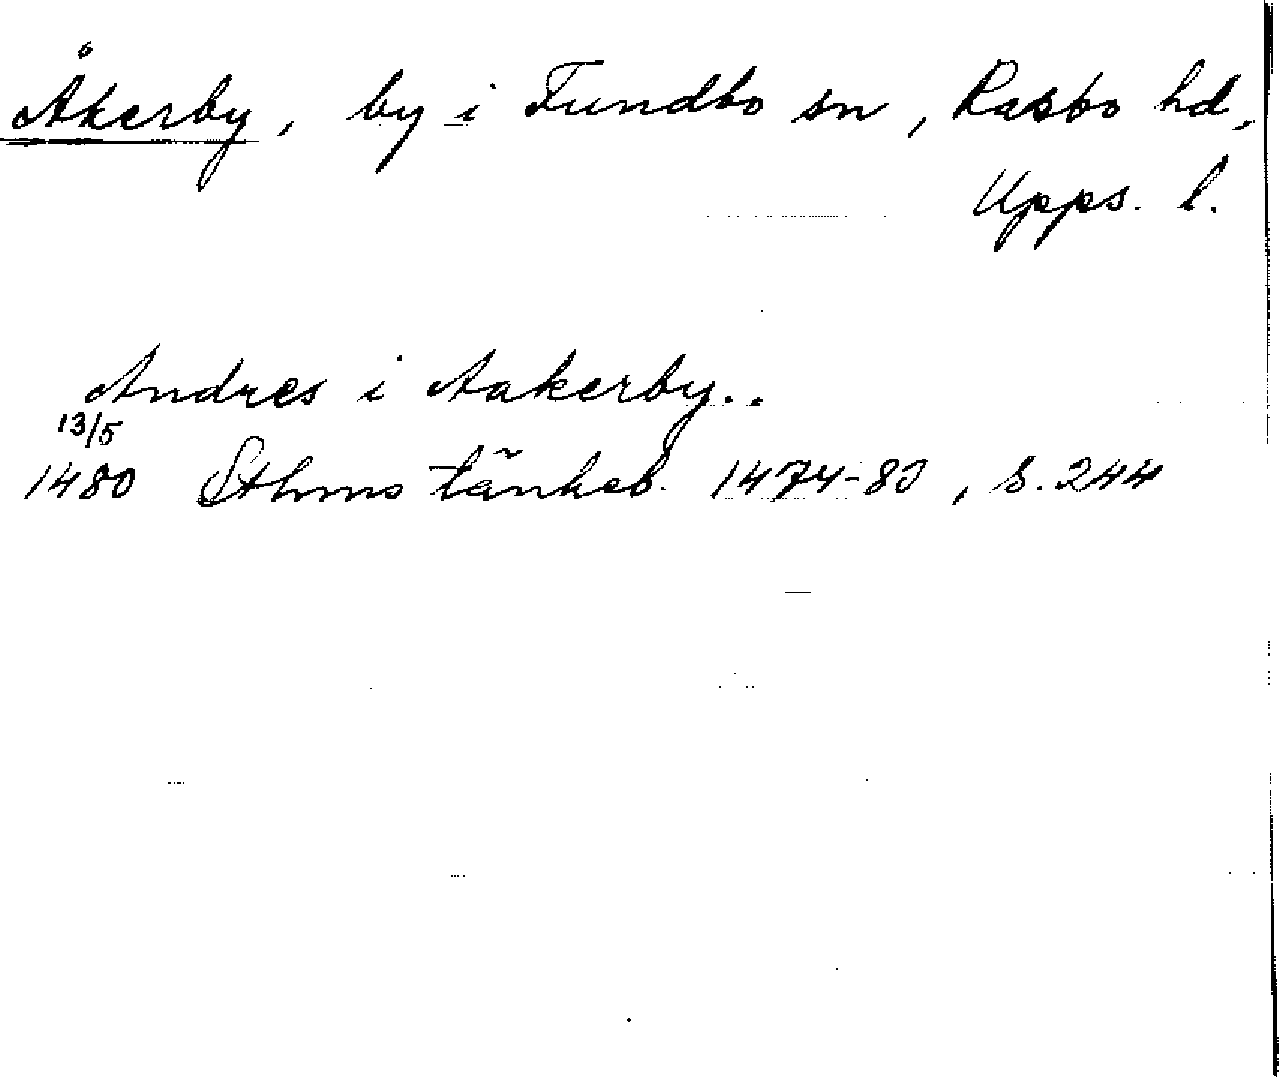 Åkerby, by i Funbo sn, Rasbo hd,
Upps. l.
Andres i Aakerby..
13/5
1480 Sthms tänkeb. 1474-83, s. 244